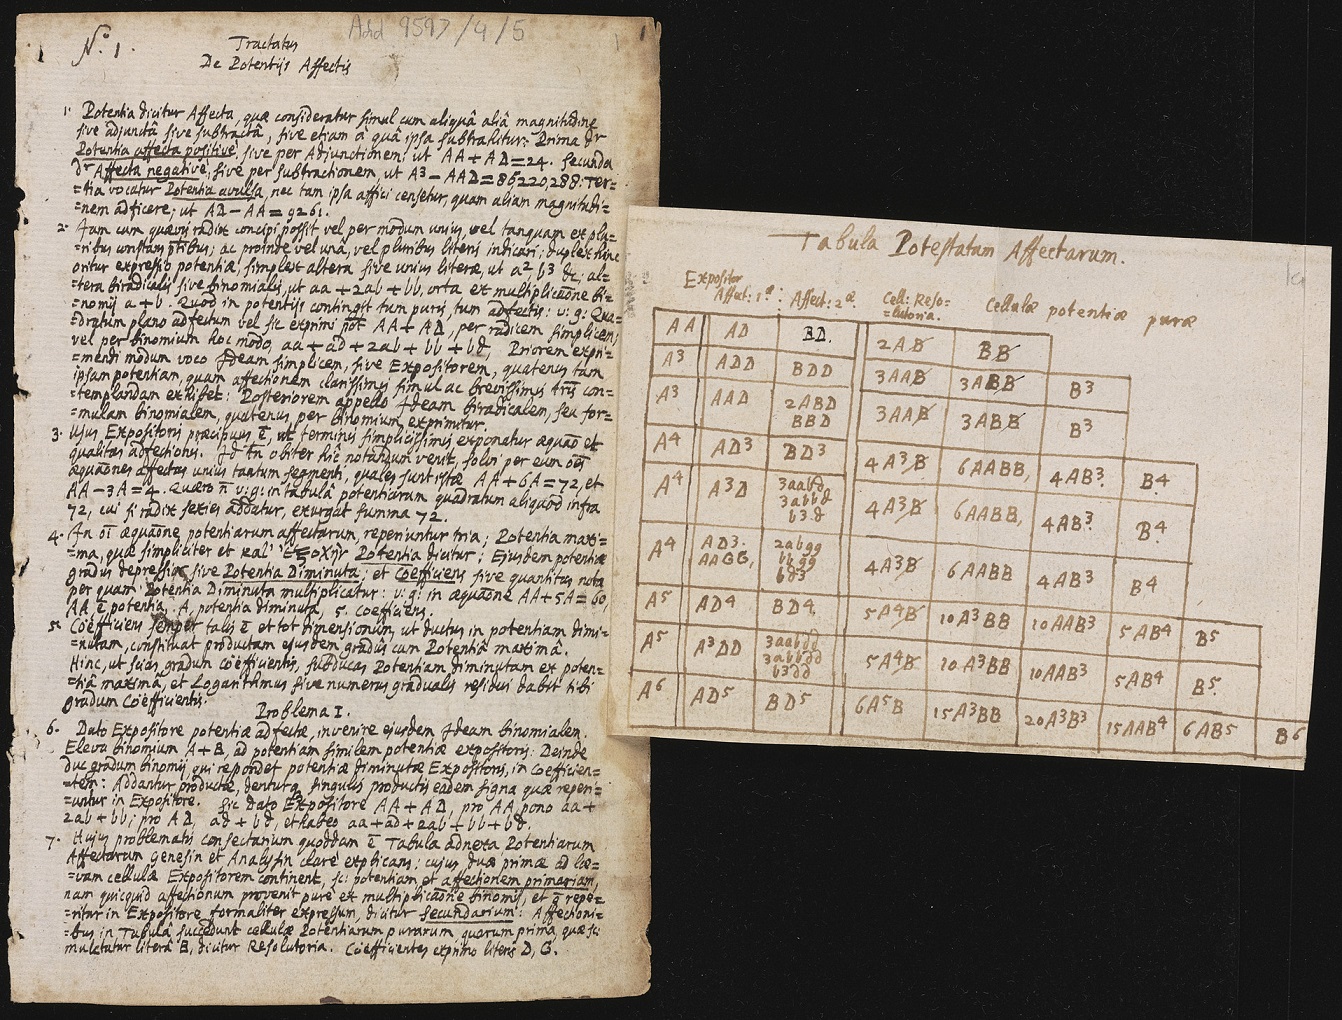 Add 9597/4/5
N.º 1.
1
Tractatus
De Potentijs Affectis
1. Potentia dicitur Affecta, quæ consideratur simul cum aliquâ aliâ magnitudine
sive adjunctâ sive subtractâ, sive etiam à quâ ipsa subtrahitur: Prima dr
Potentia affecta positivè, sive per Adjunctionem; ut AA+AD=24. Secunda
dr Affecta negativè, sive per subtractionem, ut A3−AAD=86220,288: Ter=
=tia vocatur Potentia avulsa, nec tam ipsa affici censetur, quam aliam magnitudi=
=nem adficere; ut AD−AA=9261.
2. Jam cum quævis radix concipi possit vel per modum unius, vel tanquam ex plu=
=ribus constans ptibus; ac proinde vel unâ, vel pluribus literis indicari; duplex hinc
oritur expressio potentiæ, simplex altera sive unius literæ, ut a2, b3 &c; al=
=tera biradicalis sive binomialis, ut aa+2ab+bb, orta ex multiplicaõne bi=
=nomij a+b. Quod in potentijs contingit tum puris, tum adfectis: v: g: Qua=
=dratum plano adfectum vel sic exprimi põt AA+AD, per radicem simplicem;
vel per binomium hoc modo, aa+ad+2ab+bb+bd, Priorem expri=
=mendi modum voco Ideam simplicem, sive Expositorem, quatenus tam
ipsam potentiam, quam affectionem clarissimis simul ac brevissimis tris con=
=templandam exhibet: Posteriorem appello Ideam biradicalem, seu for=
=mulam binomialem, quatenus, per binomium exprimitur.
3. Usus Expositoris præcipuus ē, ut terminis simplicissimis exponatur æquaõ et
qualitas adfectionis. Id tn obiter hic notandum venit, solvi per eum oēs
æquaōnes affectas unius tantum segmenti, quales sunt istæ AA+6A=72, et
AA−3A=4. Quæro n̄ v: g: in tabulâ potentiarum quadratum aliquod infra
72, cui si radix sexies addatur, exurgat summa 72.
4. In oi æquaōne potentiarum affectarum, reperiuntur tria; Potentia maxi=
=ma, quæ simpliciter et κατ' Ἐξοχὴν Potentia dicitur; Ejusdem potentiæ
gradus depressior, sive Potentia Diminuta; et Coefficiens sive quantitas nota
per quam Potentia Diminuta multiplicatur: v: g: in æquaōne AA+5A=60,
AA ē potentia, A, potentia diminuta, 5 coefficiens.
5. Coëfficiens semper talis ē et tot dimensionum, ut ductus in potentiam dimi=
=nutam, constituat productam ejusdem gradus cum Potentiâ maximâ.
Hinc, ut scias gradum coëfficientis, subducas Potentiam diminutam ex poten=
=tiâ maximâ, et Logarithmus sive numerus gradualis residui dabit tibi
gradum Coëfficientis.
Problema I.
6. Dato Expositore potentiæ adfectæ, invenire ejusdem Ideam binomialem.
Eleva binomium A+B, ad potentiam similem potentiæ expositoris: Deinde
duc gradum binomij qui respondet potentiæ diminutæ Expositoris, in Coefficien=
=tem: Addantur productæ, denturq singulis productis eadem signa quæ reperi=
=untur in Expositore. Sic dato Expositore AA+AD, pro AA, pono aa+
2ab+bb; pro AD, ad+bd, et habeo aa+ad+2ab+bb+bd.
7. Hujus problematis consectarium quoddam ē Tabula adnexa Potentiarum
Affectarum Genesin et Analysin clarè explicans: cujus duæ primæ ad læ=
=vam cellulæ Expositorem continent, sc: potentiam et affectionem primariam,
nam quicquid affectionum provenit purè ex multiplicaōne binomij, et q̄ repe=
=ritur in Expositore formaliter expressum, dicitur secundarium: Affectioni=
=bus in Tabulâ succedunt cellulæ Potentiarum purarum quarum prima, quæ sc:
mulctatur literâ B, dicitur Resolutoria. Coëfficientes exprimo literis D, G.
Tabula Potestatum Affectarum.
Expositor
Affect: 1ª: Affect: 2ª. Cell: Reso= Cellulæ potentiæ puræ
=lutoria.
AA AD BD. 2AB BB
A3 ADD BDD 3AAB 3ABB B3
A3 AAD 2ABD BBD 3AAB 3ABB B3
A4 AD3 BD3 4A3B 6AABB, 4AB3. B4
A4 A3D 3aabd 3abbd b3d 4A3B 6AABB, 4AB3. B4
A4 AD3. AAGG, 2abgg bbgg bd3 4A3B 6AABB 4AB3 B4
A5 AD4 BD4 5A4B 10A3BB 10AAB3 5AB4 B5
A5 A3DD 3aabdd 3abbdd b3dd 5A4B 10A3BB 10AAB3 5AB4 B5.
A6 AD5 BD5 6A5B 15A3BB 20A3B3 15AAB4 6AB5 B6